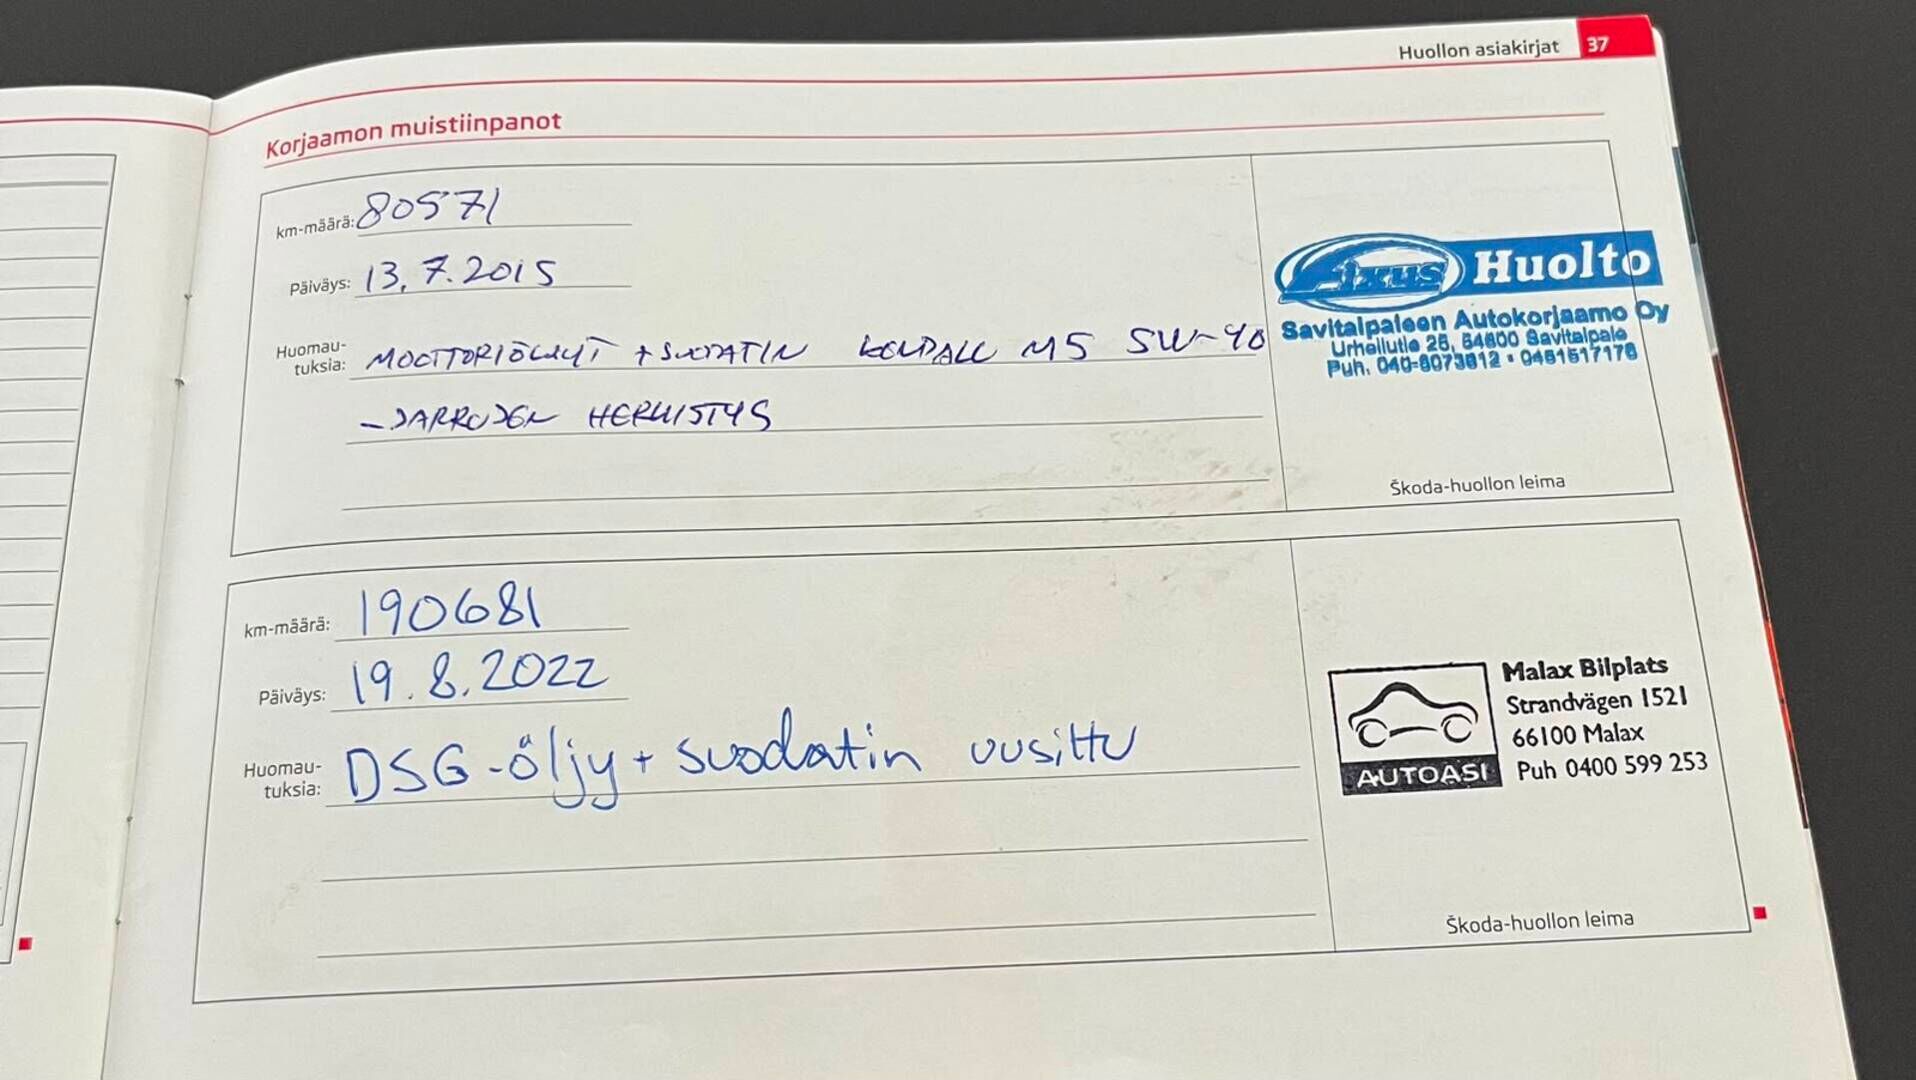 Huollon asiakirjat 37
Korjaamon muistiinpanot
km-määrä: 80571
Päiväys: 13.7.2015
Huomau-
tuksia: MOOTTORIÖLJYT + SUODATIN KENDALL M5 5W-40
- JARRUJEN HERKISTYS
Fixus Huolto
Savitaipaleen Autokorjaamo Oy
Urheilutie 25, 54800 Savitaipale
Puh. 040-8073812 • 0451517178
Škoda-huollon leima
km-määrä: 190681
Päiväys: 19.8.2022
Huomau-
tuksia: DSG-öljy + suodatin uusittu
AUTOASI
Malax Bilplats
Strandvägen 1521
66100 Malax
Puh 0400 599 253
Škoda-huollon leima